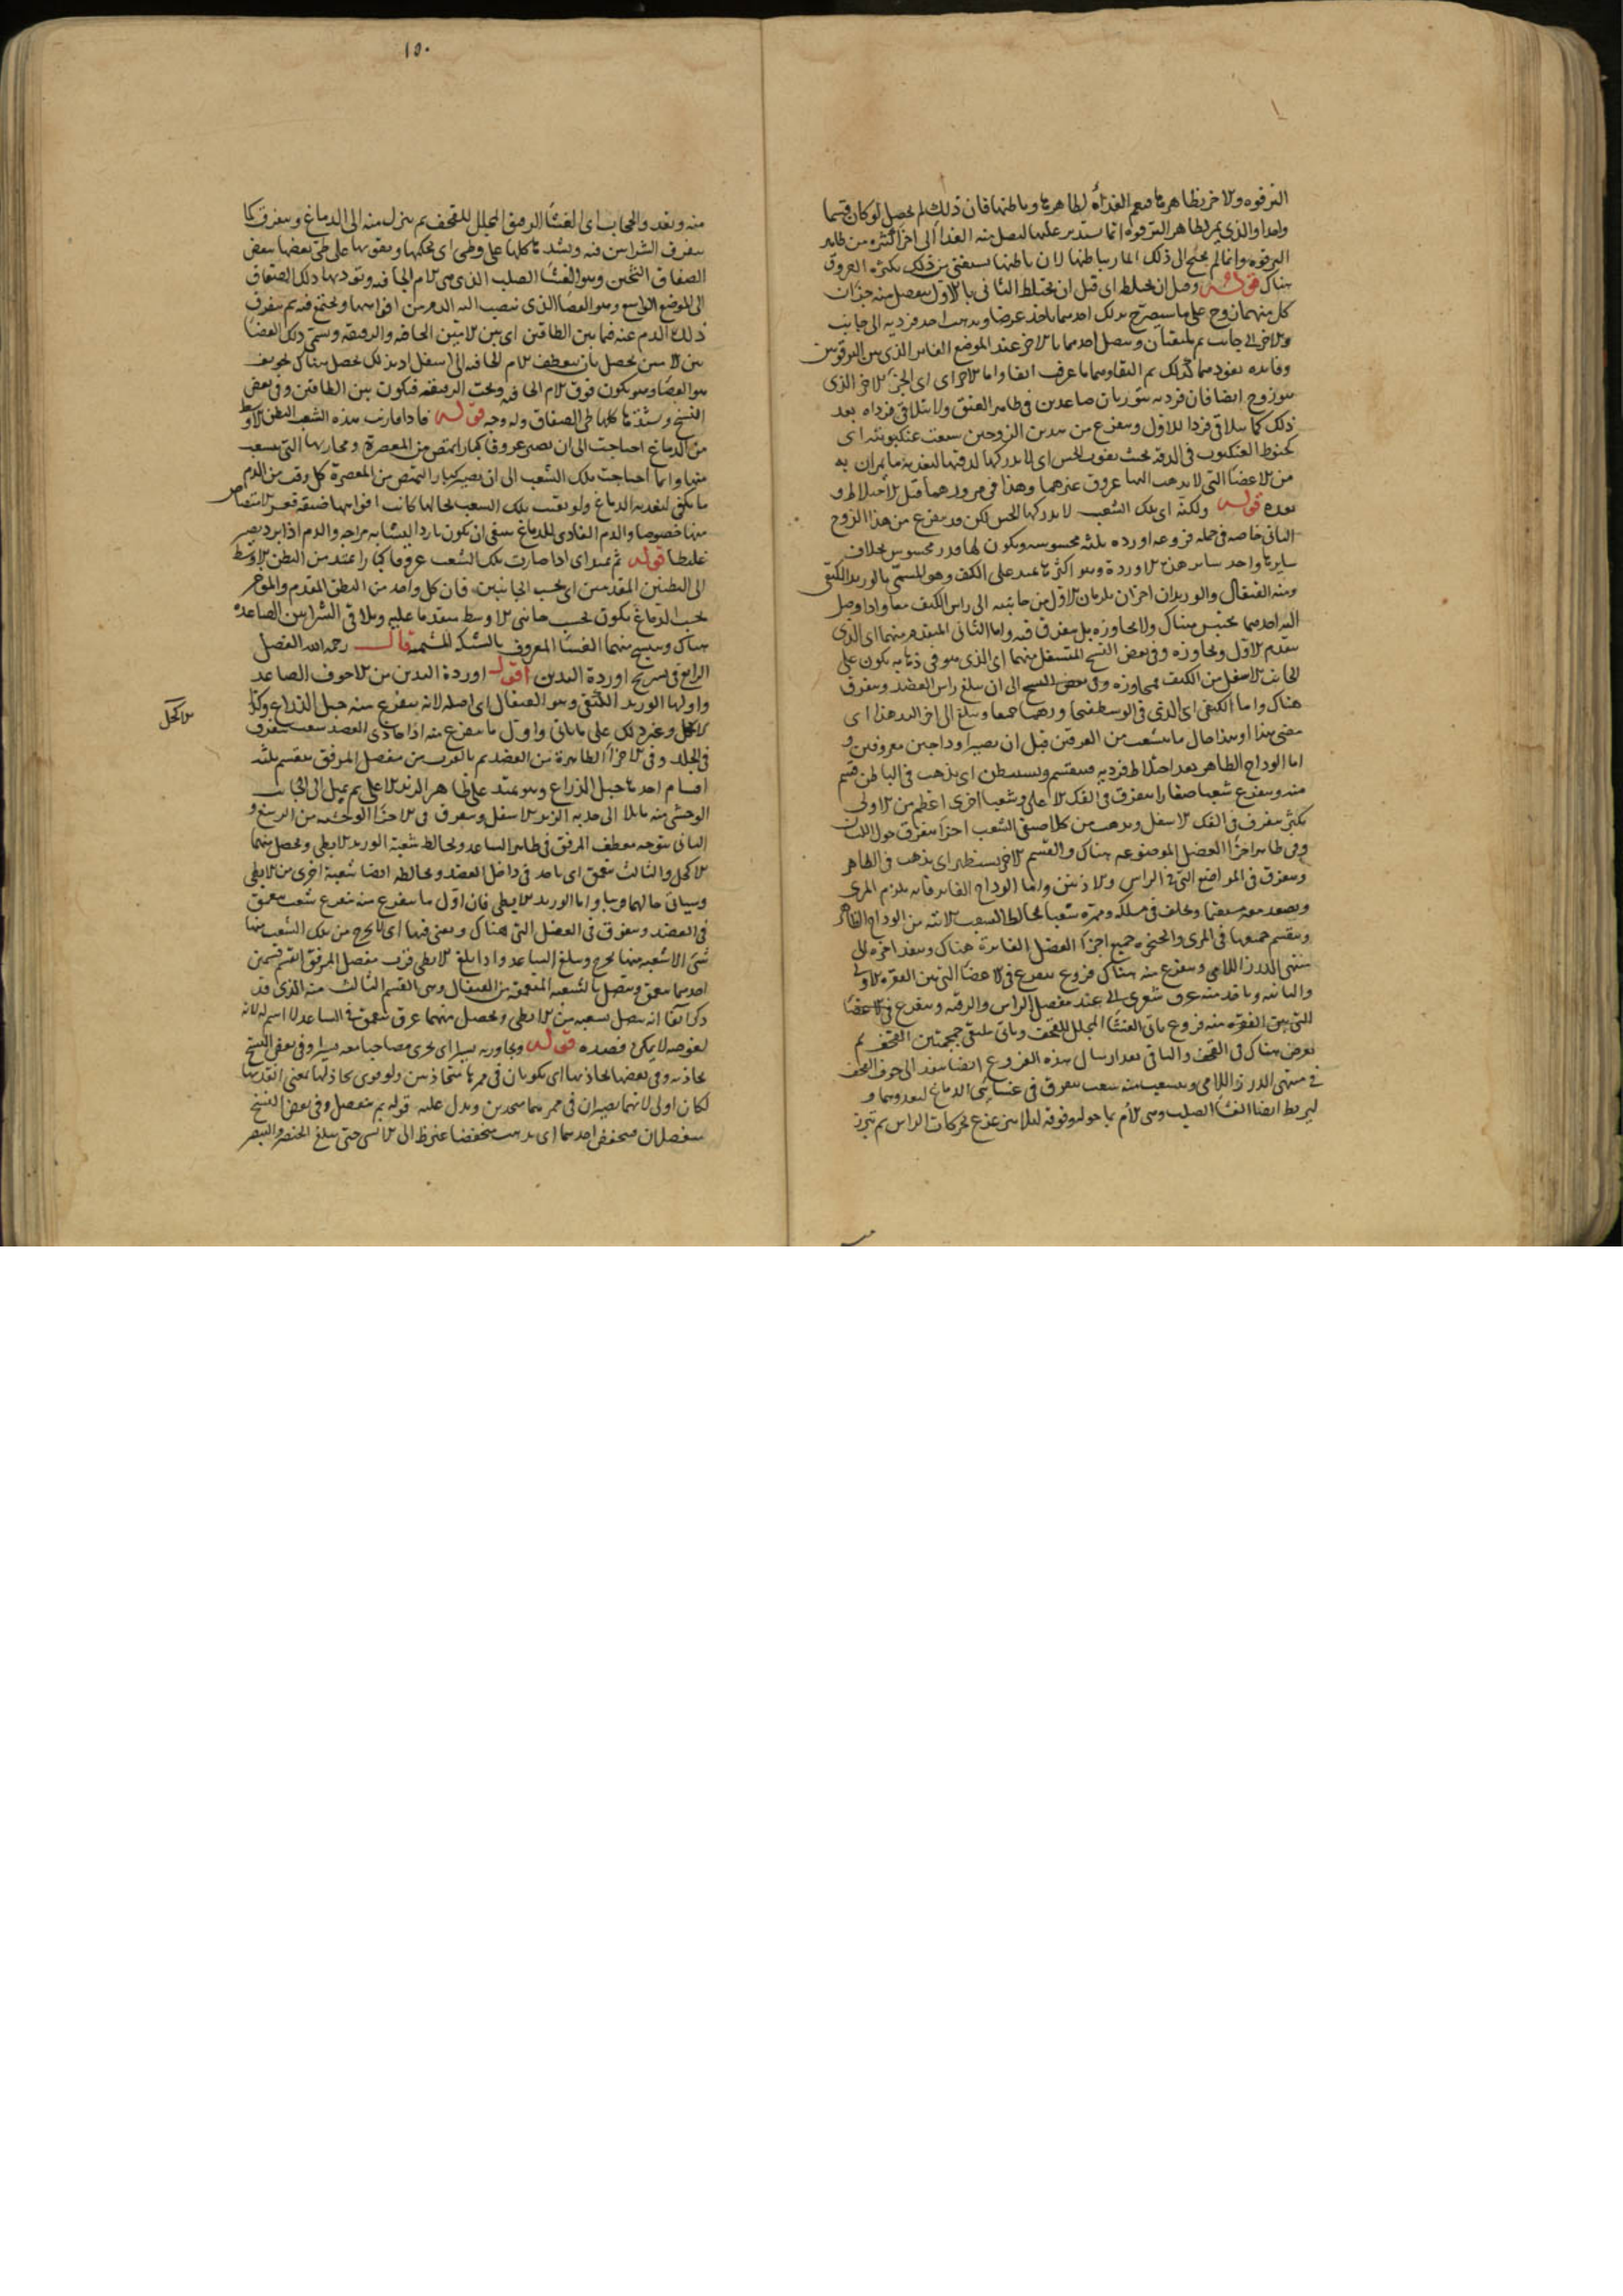 الترقوه والاخر بظاهرها فيعم الغذاء لظاهرها وباطنها فان ذلك لم يحصل لو كان قسما
واحدا والذى يمر بظاهر الترقوه انما يستدير عليها ليصل منه الغذا الى اجزا اكثره من ظاهر
الترقوه وانما لم يحتج الى ذلك المار بباطنها لان باطنها يستغنى عن ذلك بكثره العروق
هناك قوله وقبل ان يختلط اى قبل ان يختلط الثانى بالاول ينفصل منه جزان
كل منهما زوج على ما سيصرح بذلك احدهما ياخذ عرضا ويذهب احد فرديه الى جانب
والاخر الى جانب ثم يلتقيان ويتصل احدهما بالاخر عند الموضع الغاير الذى بين الترقوتين
وفايده نفوذهما كذلك ثم التقاوهما ما عرف انفا واما الاخر اى الجزء الاخر الذى
هو زوج ايضا فان فرديه يتوربان صاعدين فى ظاهر العنق ولا يتلاقى فرداه بعد
ذلك كما يتلاقى فردا الاول ويتفرع من هذين الزوجين شعب عنكبوتيه اى
كخيوط العنكبوت فى الدقه بحيث يفوت الحس اى لا يدركها لدقتها لتغذيه ما يمران به
من الاعضا التى لا يذهب اليها عروق غيرهما وهذا فى مرورهما قبل الاختلاط و
بعده قوله ولكنه اى تلك الشعب لا يدركها الحس لكن قد يتفرع من هذا الزوج
الثانى خاصه فى جمله فروعه اورده ثلثه محسوسه ويكون لها قدر محسوس بخلاف
سايرها واحد ساير هذه الاوردة وهو اكثرها يمتد على الكتف وهو المسمى بالوريد الكتفى
ومنه القيفال والوريدان اخران يلزمان الاول من جانبيه الى راس الكتف معا واذا وصل
اليه احدهما يحتبس هناك ولا يجاوزه بل يتفرق فيه واما الثانى المتقدم منهما اى الذى
يتقدم الاول ويجاوزه وفى بعض النسخ المتسفل منهما اى الذى هو فى ذهابه يكون على
الجانب الاسفل من الكتف فيجاوزه وفى بعض النسخ الى ان يبلغ راس العضد ويتفرق
هناك واما الكتفى اى الذى فى الوسط فيجاوزهما جميعا ويبلغ الى اخر اليد هذا اى
مضى هذا او هذا حال ما يتشعب من العرقين قبل ان يصيرا وداجين معروفين و
اما الوداج الظاهر بعد اختلاط فرديه فينقسم ويستبطن اى يذهب فى الباطن قسم
منه ويتفرع شعبا صغارا يتفرق فى الفك الاعلى وشعبا اخرى اعظم من الاولى
بكثير يتفرق فى الفك الاسفل ويذهب من كلا صنفى الشعب اجزا يتفرق حول اللسان
وفى ظاهر اجزا العضل الموضوعه هناك والقسم الاخر يستظهر اى يذهب فى الظاهر
ويتفرق فى المواضع التى فى الراس والاذنين واما الوداج الغاير فانه يلزم المرى
ويصعد معه مستقيما ويخلف فى مسلكه وممره شعبا تخالط الشعب الاتيه من الوداج الظاهر
وينقسم جميعها فى المرى والحنجره وجميع اجزا العضل الغايرة هناك وينفذ اخره الى
منتهى الدرز اللامى ويتفرع منه هناك فروع يتفرق فى الاعضا التى بين الفقره الاولى
والثانيه وياخذ منه عرق شعرى الى عند مفصل الراس والرقبه ويتفرع فى الاعضا
التى بين الفقره منه فروع ياتى الغشا المجلل للقحف وياتى ملتقى جمجمتين القحف ثم
يغوص هناك فى القحف والباقى بعد ارسال هذه الفروع ايضا ينفذ الى جوف القحف
فى منتهى الدرز اللامى ويتشعب منه شعب يتفرق فى غشائى الدماغ ليغذوهما و
ليربط ايضا الغشا الصلب وهى الام بما حوله وفوقه لئلا يتزعزع بحركات الراس ثم يبرز
١٥٠
منه ويغذو الحجاب اى الغشا الرقيق المجلل للقحف ثم ينزل منه الى الدماغ ويتفرق كما
يتفرق الشرايين فيه ويشدها كلها على وطى اى يحكمها ويقويها على طى بعضها بعض
الصفاق الثخين وهو الغشا الصلب الذى هى الام الجافيه ويوديها ذلك الصفاق
الى الموضع الواسع وهو الفضا الذى ينصب اليه الدم من افواهها ويجتمع فيه ثم يتفرق
ذلك الدم عنه فيما بين الطاقين اى بين الامين الجافيه والرقيقه ويسمى ذلك الفضا
بين الامين يحصل بان ينعطف الام الجافيه الى اسفل اذ بذلك يحصل هناك تجويف
هو الفضا وهو يكون فوق الام الجافيه وتحت الرقيقه فيكون بين الطاقين وفى بعض
النسخ ويشدها كلها طى الصفاق وله وجه قوله فاذا قاربت هذه الشعب البطن الاوسط
من الدماغ احتاجت الى ان يصير عروقا كبارا تمتص من المعصرة ومجاريها التى يتشعب
منها وانما احتاجت تلك الشعب الى ان يصير كبارا لتمتص من المعصرة كل وقت من الدم
ما يكفى لتغذيه الدماغ ولو بقيت تلك الشعب بحالها كانت افواهها ضيقه فعسر الامتصاص
منها خصوصا والدم الغاذى للدماغ ينبغى ان يكون باردا ليشابه مزاجه والدم اذا برد يصير
غليظا قوله ثم يمتد اى اذا صارت تلك الشعب عروقا كبارا يمتد من البطن الاوسط
الى البطنين المقدمين اى بحسب الجانبين فان كل واحد من البطن المقدم والموخر
بحسب الدماغ يكون بحسب جانبى الاوسط متقدما عليه ويلاقى الشرايين الصاعده
هناك وينسج منهما الغشا المعروف بالشبكه المشيميه قال رحمه الله الفصل
الرابع فى تشريح اوردة اليدين اقول اوردة اليدين من الاجوف الصاعد
واولها الوريد الكتفى وهو القيفال اى اصله لانه يتفرع منه حبل الذراع وكذا
الاكحل وغير ذلك على ما ياتى واول ما يتفرع منه اذا حاذى العضد شعب يتفرق
فى الجلد وفى الاجزا الظاهرة من العضد ثم بالقرب من مفصل المرفق ينقسم ثلثه
اقسام احدها حبل الذراع وهو يمتد على ظاهر الزند الاعلى ثم يميل الى الجانب
الوحشى منه مايلا الى حدبه الزند الاسفل ويتفرق فى الاجزا الوحشيه من الرسغ و
الثانى يتوجه معطف المرفق فى ظاهر الساعد ويخالط شعبة الوريد الابطى ويحصل منهما
الاكحل والثالث يتعمق اى ياخذ فى داخل العضد ويخالطه ايضا شعبة اخرى من الابطى
وسياتى حالهما قريبا واما الوريد الابطى فان اول ما يتفرع منه يتفرع شعب يتعمق
فى العضد ويتفرق فى العضل التى هناك ويفنى فيها اى لا يخرج من تلك الشعب منها
شئ الا شعبه منها يخرج ويبلغ الساعد واذا بلغ الابطى قرب مفصل المرفق انقسم قسمين
احدهما يتعمق ويتصل بالشعبه المتعمقه من القيفال وهى القسم الثالث منه الذى قد
ذكر انفا انه يتصل بشعبه من الابطى ويحصل منهما عرق يتعمق فى الساعد لا اسم له لانه
لغوصه لا يمكن فصده قوله ويجاوزه يسيرا اى يجرى مصاحبا معه يسيرا وفى بعض النسخ
يحاذيه وفى بعضها يحاذيها اى يكونان فى ممرها متحاذيين ولو قوى يحاذلها بمعنى انفذيها
لكان اولى لانهما يصيران فى ممرهما متحدين ويدل عليه قوله ثم ينفصل وفى بعض النسخ
ينفصلان فينخفض احدهما اى يذهب منخفضا عن وظ الى الانسى حتى يبلغ الخنصر والبنصر
الاكحل